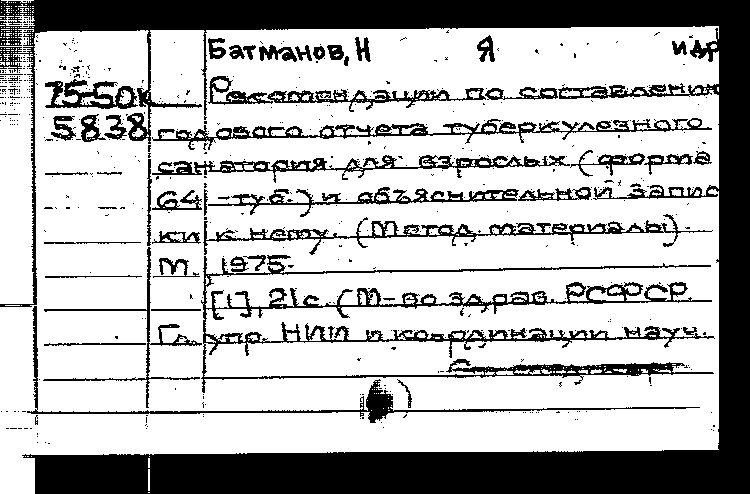 Батманов, Н Я и др
75-50к Рекомендации по составлению
5838 годового отчета туберкулезного
санатория для взрослых (форма
64-туб.) и объяснительной запис
ки к нему. (Метод. материалы).
М., 1975.
[1], 21 с. (М-во здрав. РСФСР
Гл. упр. НИИ и координации науч.